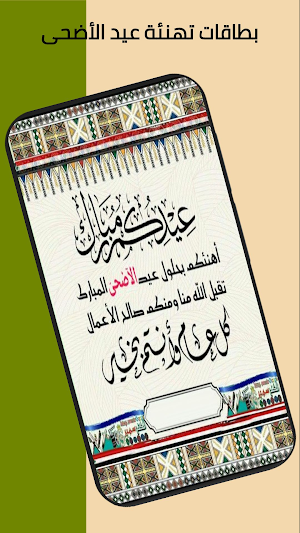 بطاقات تهنئة عيد الأضحى
عيدكم مبارك
أهنئكم بحلول عيد الأضحى المبارك
تقبل الله منا ومنكم صالح الأعمال
كل عام وأنتم بخير